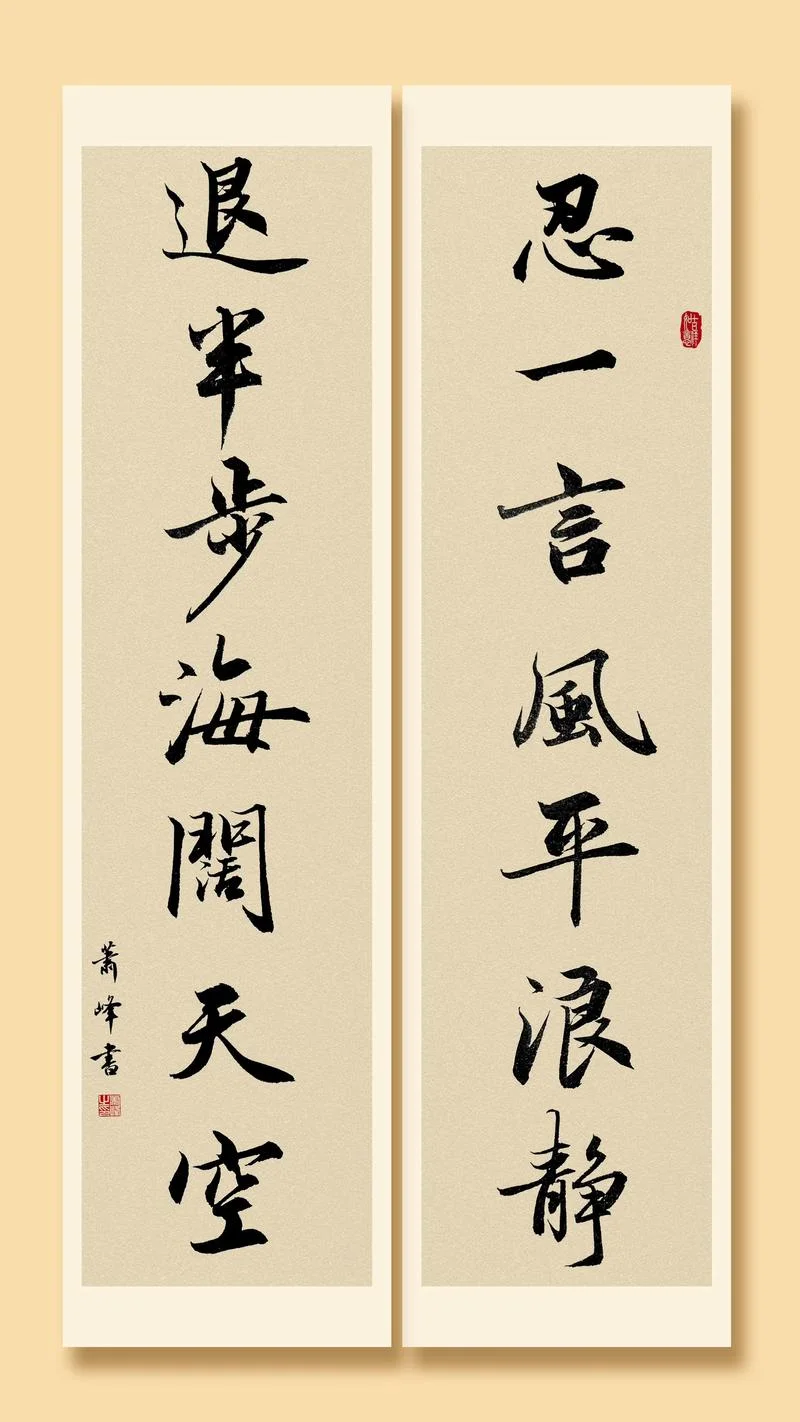 忍一言風平浪静
退半步海闊天空
蕭峰書